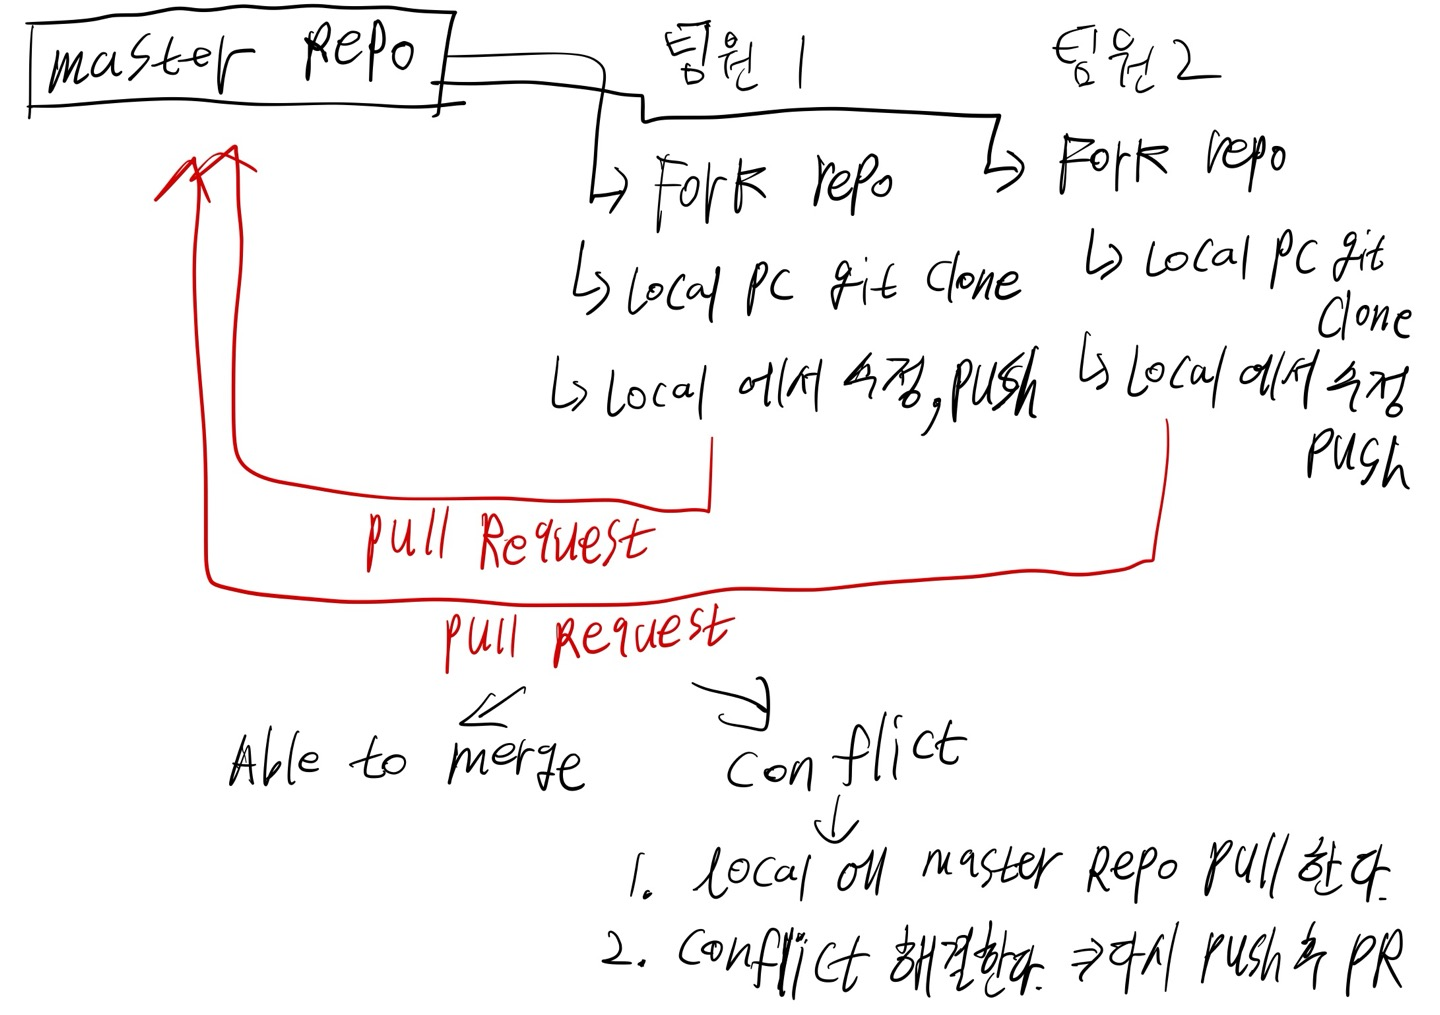 master Repo
팀원 1
Fork repo
↳ Local PC git clone
↳ Local 에서 수정, push
팀원 2
Fork repo
↳ Local PC git
clone
↳ Local 에서 수정
push
Pull Request
Pull Request
Able to merge
Conflict
1. local 에 master Repo pull 한다.
2. Conflict 해결한다. ⇒ 다시 push 후 PR